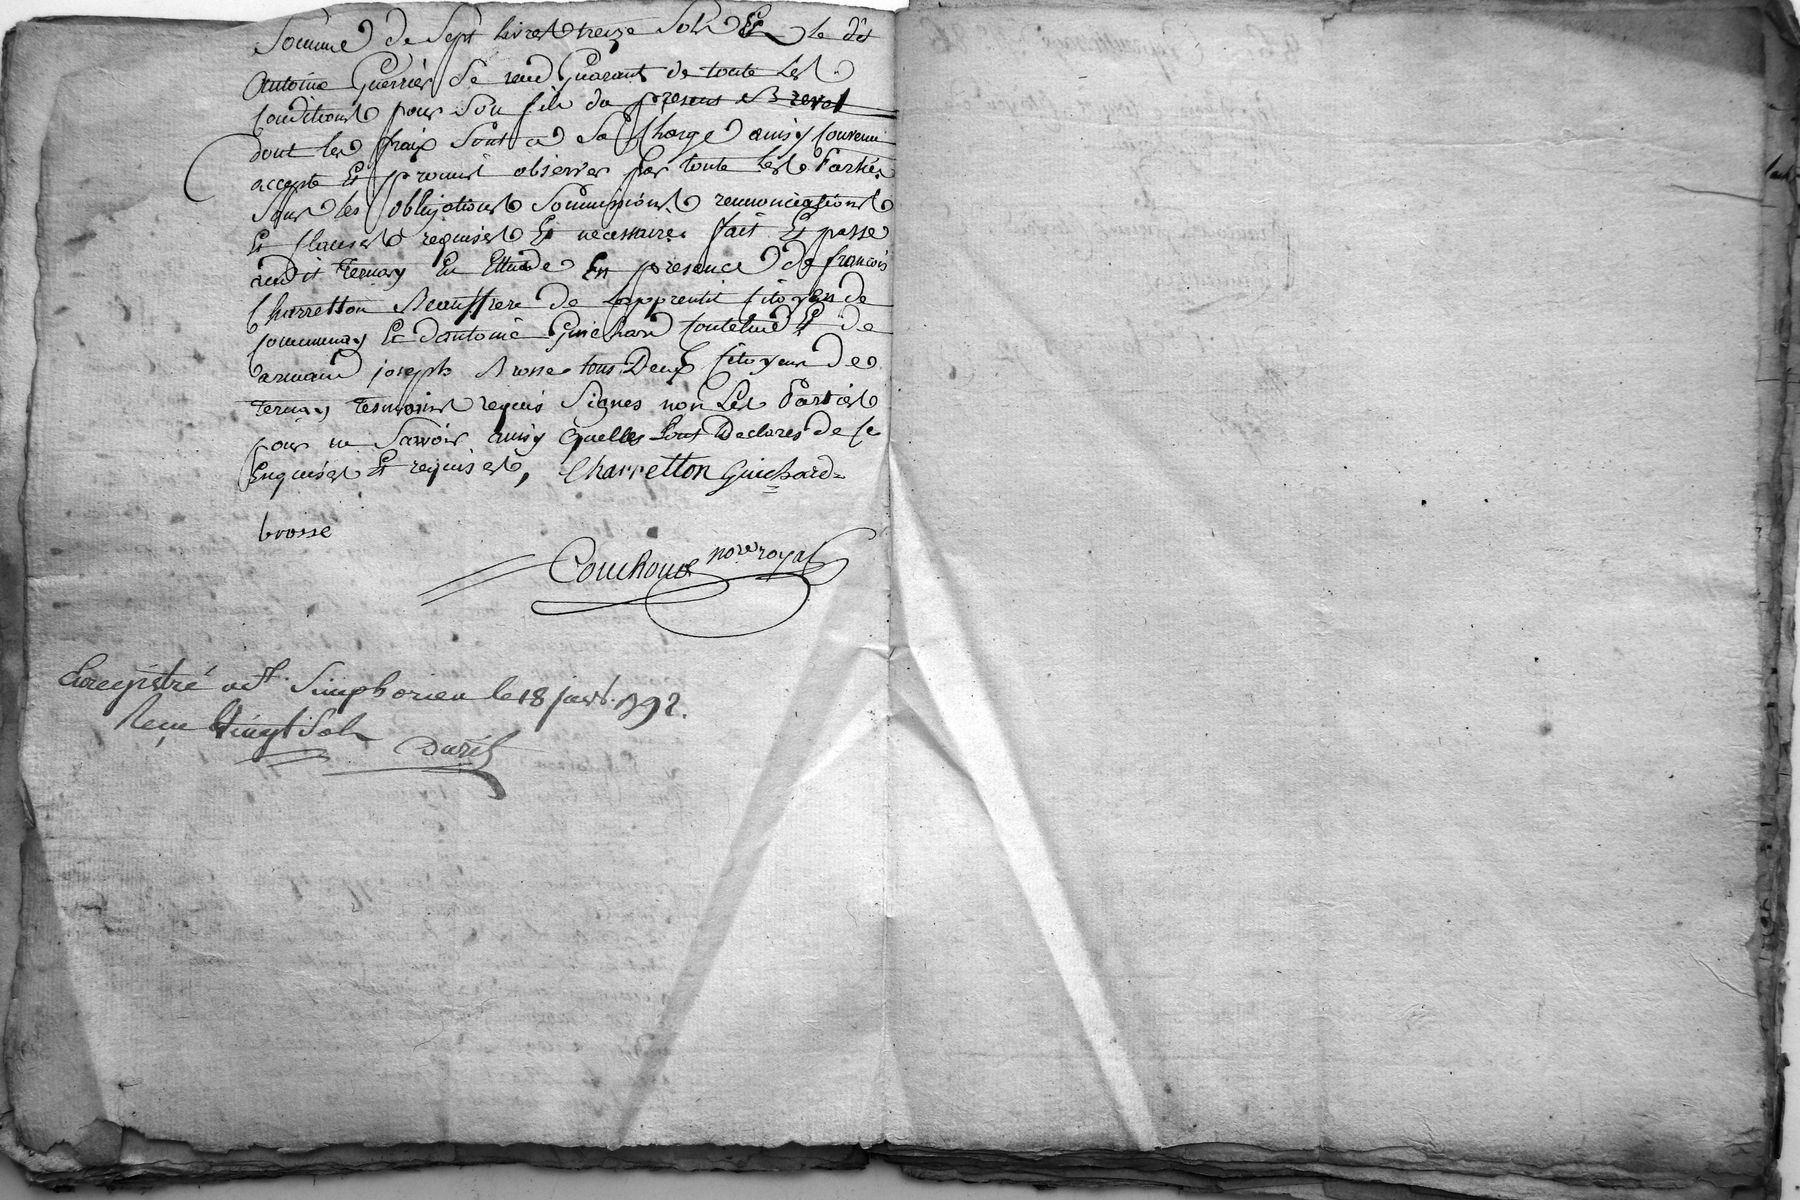 Somme de Sept livres treize Sols Et le dit
Antoine Guerrier Se rend Guarant de toute Les
Conditions pour Son fils du present Brevet
dont les fraix Sont a Sa Charge ainsy Convenu
accepte Et promis observer par toute les Parties
Sous les obligations Soumissions renonciations
Et Clauses requises Et necessaires fait Et passe
audit Ternay En Ettude En presence de francois
Charretton Beauffrere de Lapprentit Citoyen de
Communay Et dantoine Guichard Et de
armand joseph Brosse tous Deux Citoyens de
Ternay Tesmoins requis Signes non Les Parties
pour ne Savoir ainsy quelles Lont Declares de Ce
Enquises Et requises, Charretton Guichard
brosse
Couchoud nore royal
Enregistré a St. Simphorien le 18 janv. 1792.
Recu Vingt Sols